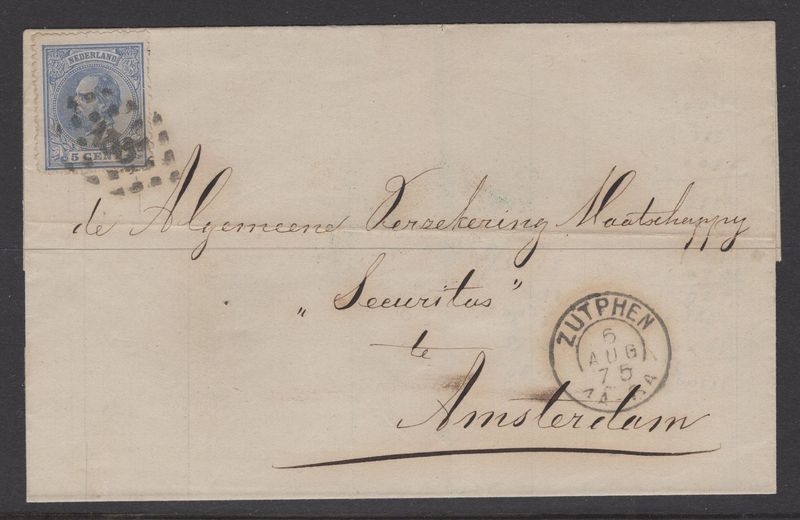 NEDERLAND
5 CENT
de Algemeene Verzekering Maatschappy
„Securitas"
te
Amsterdam
ZUTPHEN
6
AUG
75